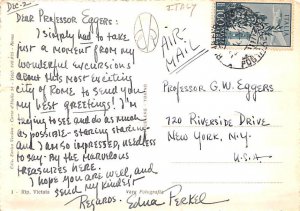 DEC-2
ITALY
DEAR PROFESSOR EGGERS:
I simply had to take
just a moment from my
wonderful excursions
about this most exciting
city of Rome to send you
my best greetings! I'm
trying to see and do as much
as possible- staring staring-
and I am so impressed, needless
to say- by the marvelous
treasures here.
I hope you are well, and
send my kindest
Regards. Edna Perkel
AIR-
MAIL
PROFESSOR G.W. EGGERS
720 RIVERSIDE DRIVE
NEW YORK, N.Y.
U.S.A.
Rip. Vietata
Vera Fotografia